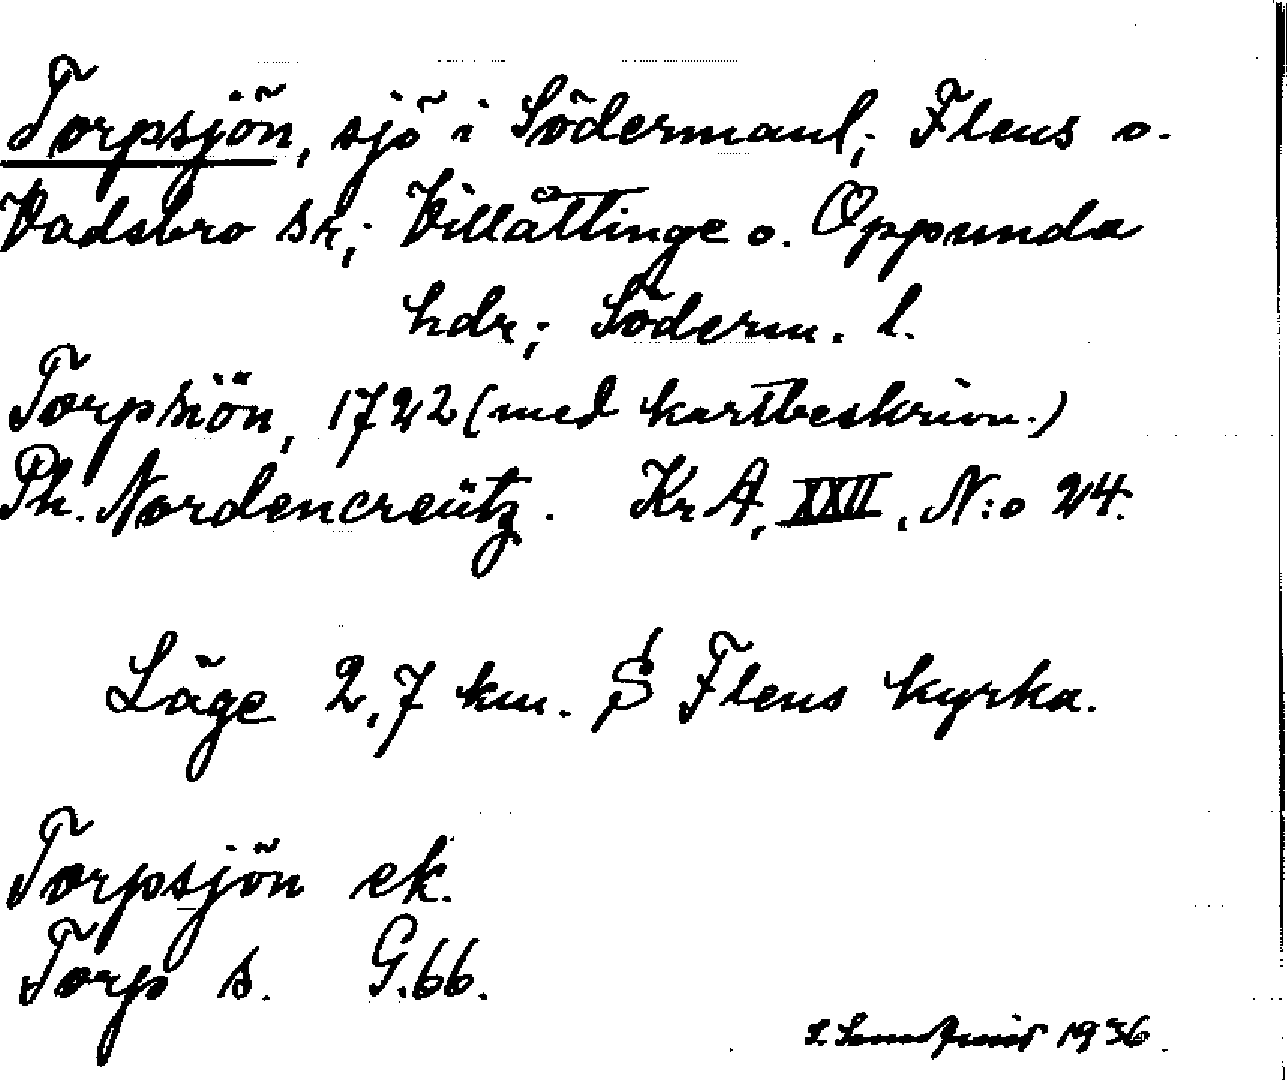 Torpsjön, sjö i Södermanl; Flens o.
Vadsbro sn; Villåttinge o. Oppunda
hdr; Söderm. l.
Torpsiön, 1722 (med kartbeskrivn.)
Ph. Nordencreütz. Kr A, XXII, N:o 24.
Läge 2,7 km. S Flens kyrka.
Torpsjön ek.
Torp s. G.66.
1936.